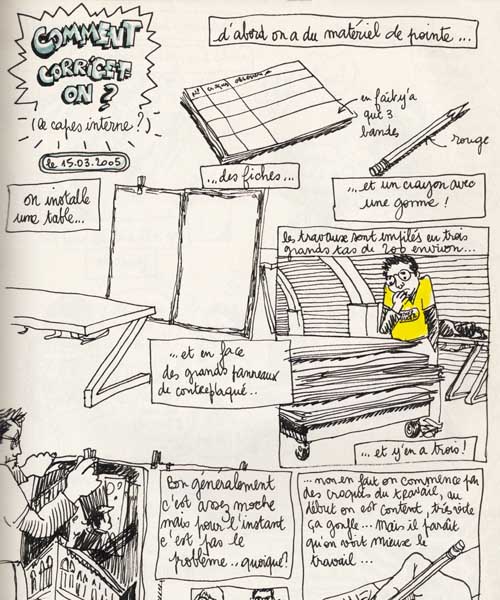 COMMENT
CORRIGE-T-
ON ?
(le capes interne ?)
le 15.03.2005
d'abord on a du matériel de pointe...
N°
en fait y'a
que 3
bandes
rouge
...des fiches...
...et un crayon avec
une gomme !
on installe
une table...
les travaux sont empilés en trois
grands tas de 200 environ...
...et en face
des grands panneaux
de contreplaqué...
...et y'en a trois !
Bon généralement
c'est assez moche
mais pour l'instant
c'est pas le
problème... quoique !
...non en fait on commence par
des croquis du travail, au
début on est content, très vite
ça gonfle... Mais il paraît
qu'on voit mieux le
travail...